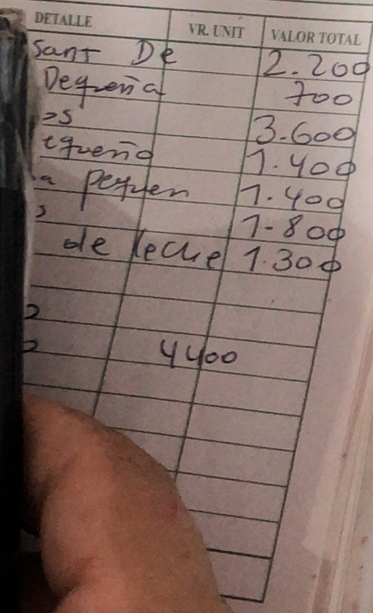 DETALLE VR. UNIT VALOR TOTAL
sant De 2.200
pequeña 700
os 3.600
equeño 1.400
a pequeñ 1.400
s 1-800
de leche 1.300
4400